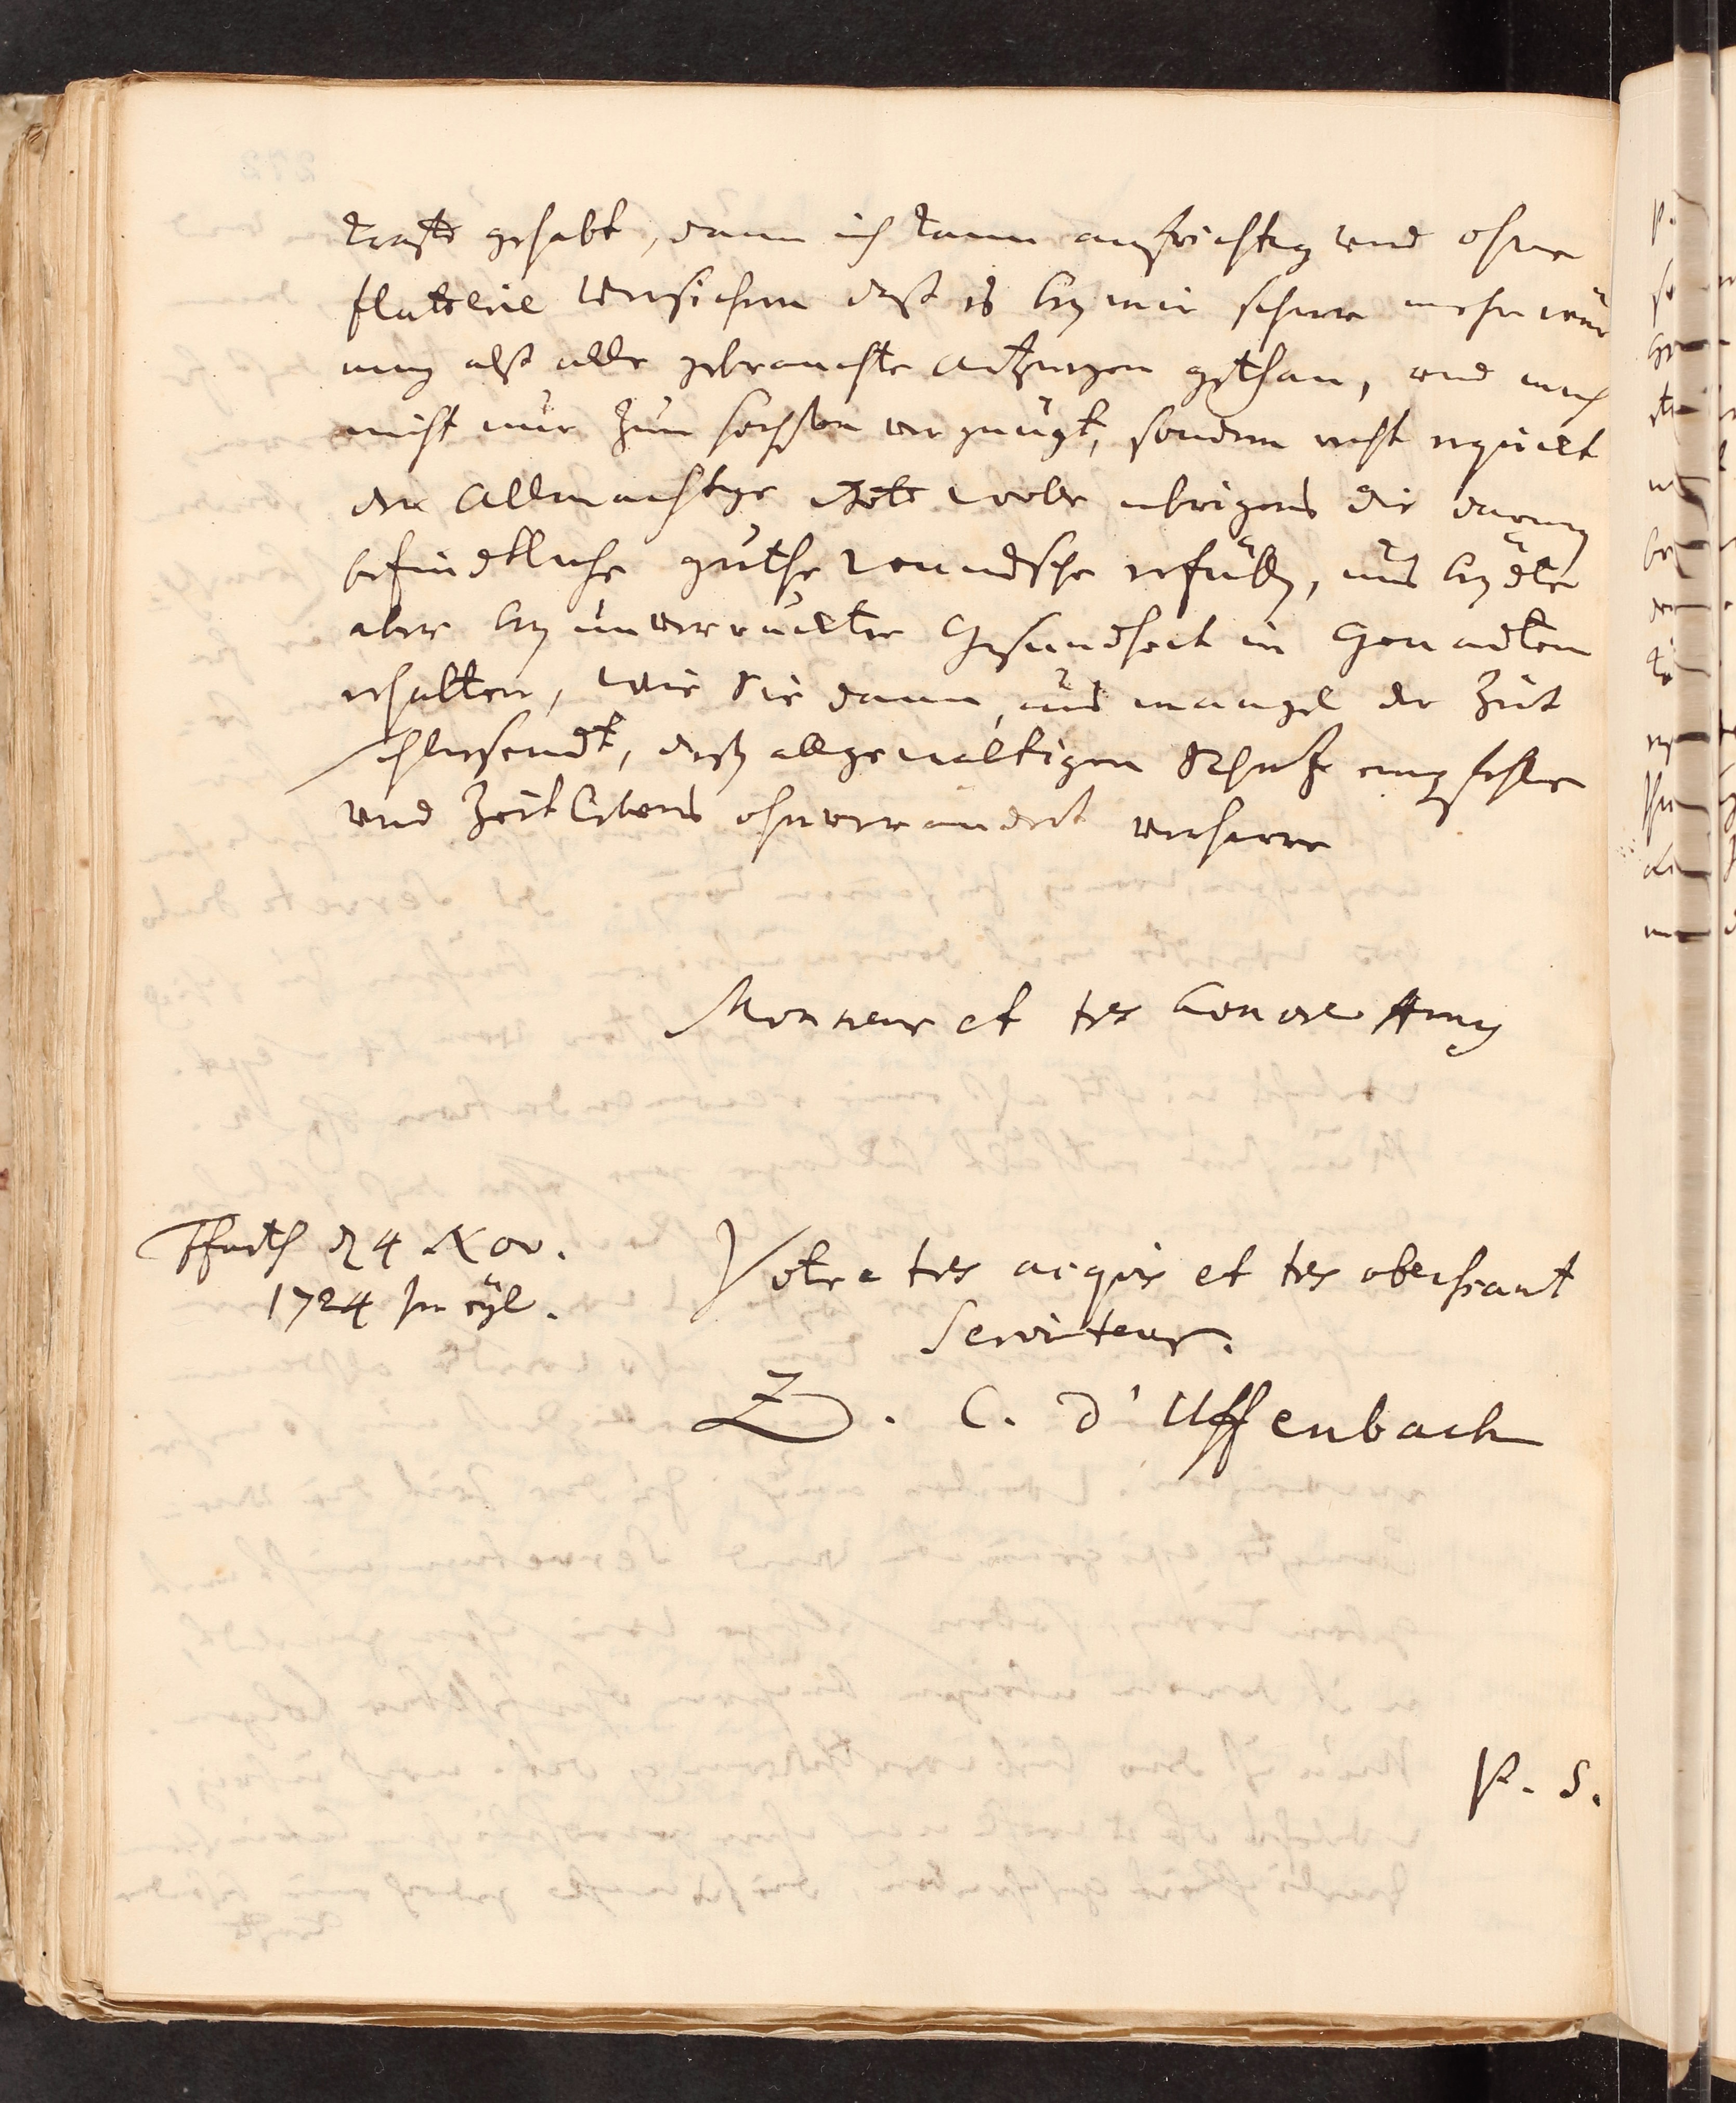 krafft gehabt, dann ich kann aufrichtig und ohne
flatterie versichern daß es bey mir schier mehr wür
ung alß alle gebrauchte artzneyen gethan, und mich
nicht nur zum höchsten vergnügt, sondern recht erquickt
der Allmächtige Gott wolle übrigens die darinn
befindtliche guthe wündsche erfüllen, uns beyde
aber bey unverrückter Gesundheit in Genaden
erhalten, wie Sie dann, aus mangel der Zeit
schliesendt, deßen allgewaltigen Schutz empfehle
und Zeit lebens ohnverändert verharre
Monsieur et tres honoré Amy
Ffurth d 4 Nov.
1724 In eyl.
Votre tres acquis et tres obeissant
Serviteur.
Z. C. d'Uffenbach
P. S.